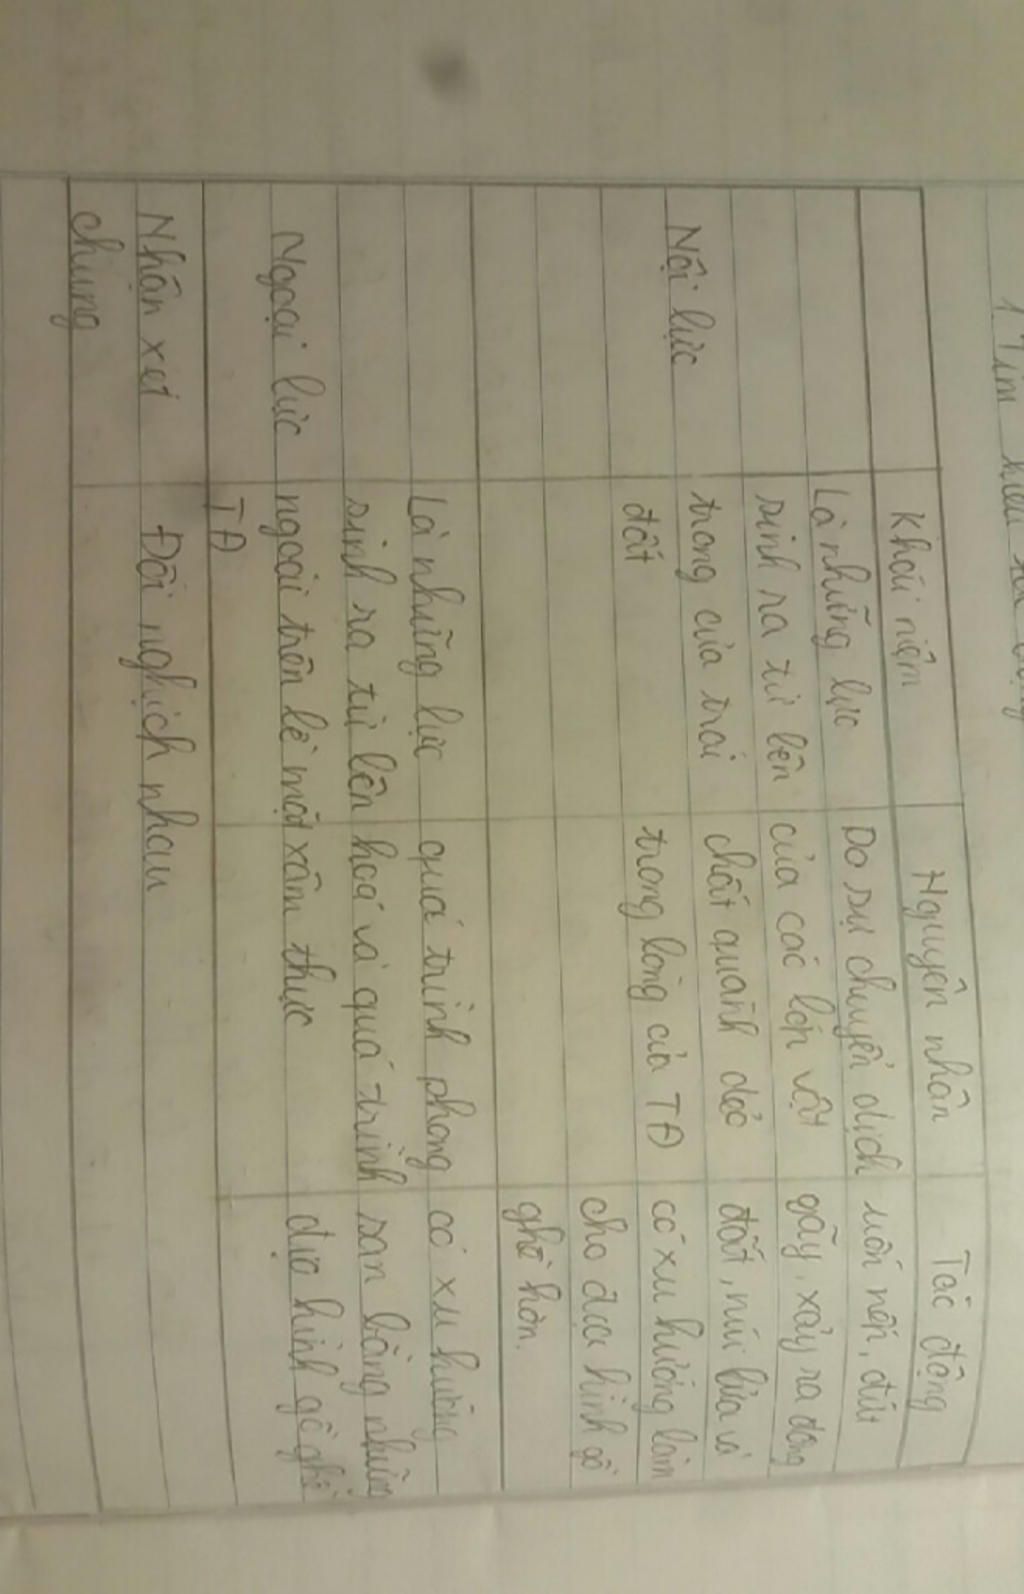 1. Tìm hiểu
Khái niệm
Nguyên nhân
Tác động
Nội lực
Là những lực
sinh ra từ bên
trong của trái
đất
Do sự chuyển dịch
của các lớp vật
chất quánh dẻo
trong lòng của TĐ
uốn nếp, đứt
gãy, xảy ra động
đất, núi lửa và
có xu hướng làm
cho địa hình gồ
ghề hơn.
Ngoại lực
Là những lực
sinh ra từ bên
ngoài trên bề mặt
TĐ
quá trình phong
hoá và quá trình
xâm thực
có xu hướng
san bằng những
địa hình gồ ghề
Nhận xét
chung
Đối nghịch nhau